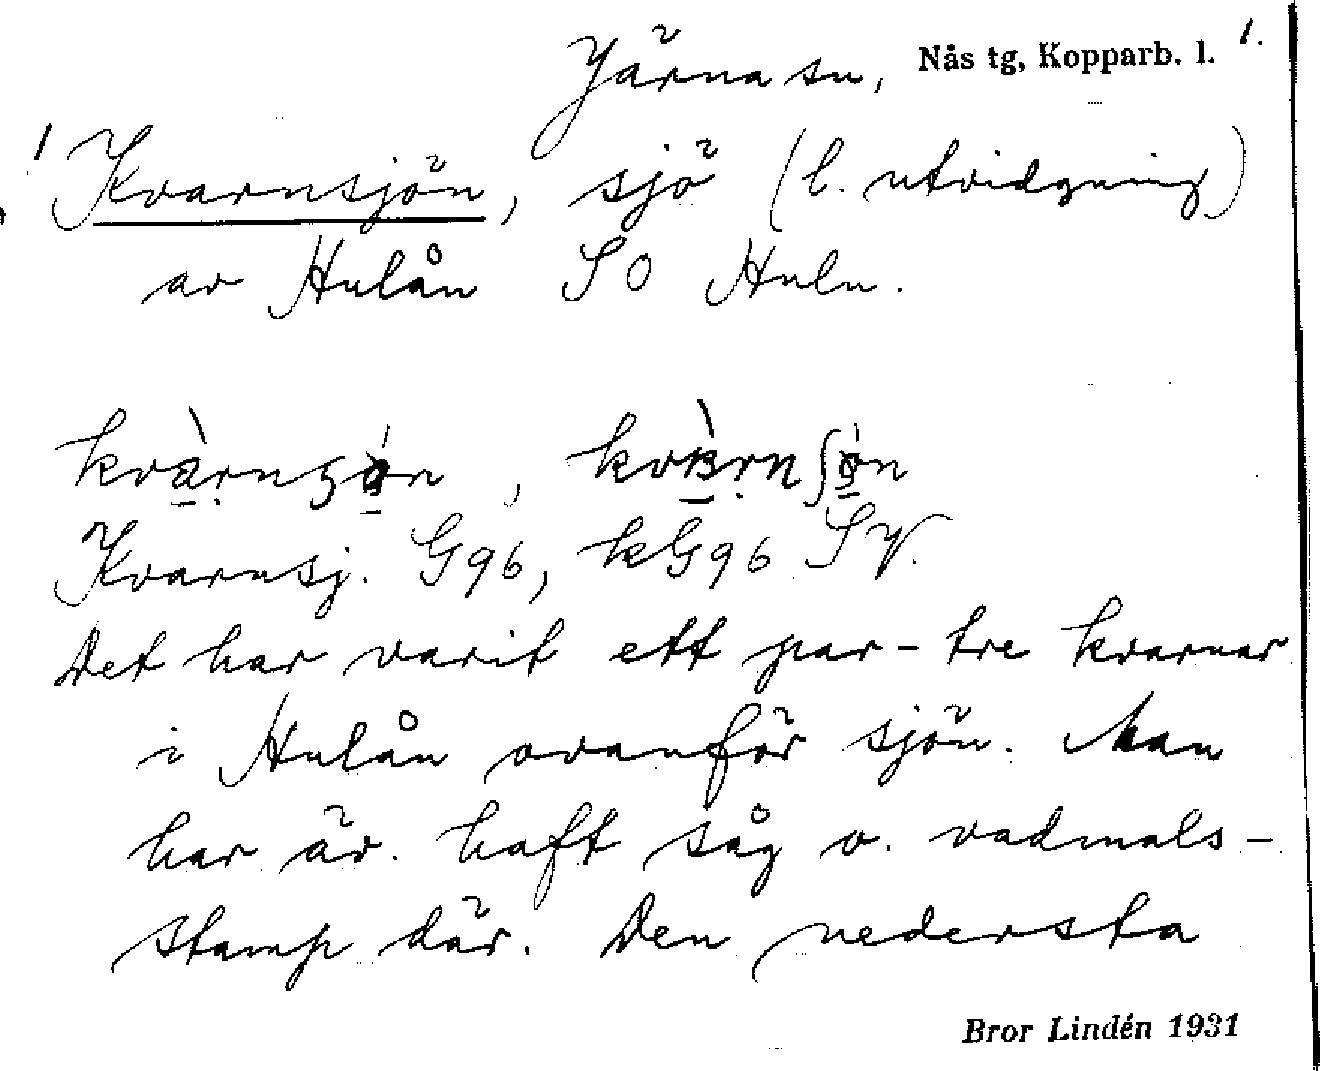 Järna sn, Nås tg, Kopparb. l. 1.
Kvarnsjön, sjö (l. utvidgning)
av Hulån SO Huln.
Kvarnsj. G96, kG96 SV.
Det har varit ett par-tre kvarnar
i Hulån ovanför sjön. Man
har äv. haft såg o. vadmals-
stamp där. Den nedersta
Bror Lindén 1931